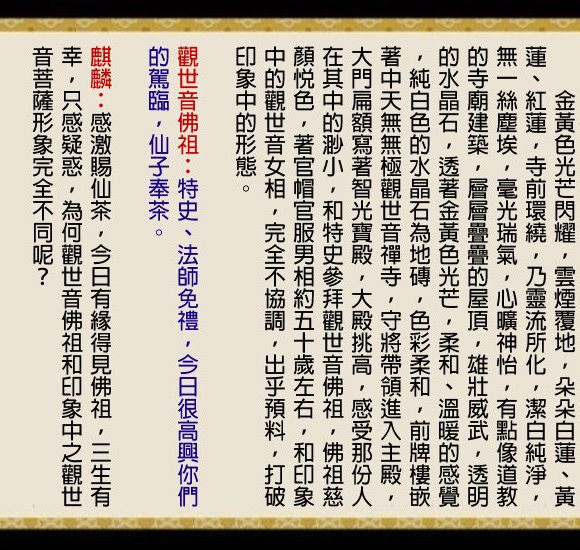 金黃色光芒閃耀，雲煙覆地，朵朵白蓮、黃
蓮、紅蓮，寺前環繞，乃靈流所化，潔白純淨，
無一絲塵埃，毫光瑞氣，心曠神怡，有點像道教
的寺廟建築，層層疊疊的屋頂，雄壯威武，透明
的水晶石，透著金黃色光芒，柔和、溫暖的感覺
，純白色的水晶石為地磚，色彩柔和，前牌樓嵌
著中天無無極觀世音禪寺，守將帶領進入主殿，
大門扁額寫著智光寶殿，大殿挑高，感受那份人
在其中的渺小，和特史參拜觀世音佛祖，佛祖慈
顏悅色，著官帽官服男相約五十歲左右，和印象
中的觀世音女相，完全不協調，出乎預料，打破
印象中的形態。
觀世音佛祖：特史、法師免禮，今日很高興你們
的駕臨，仙子奉茶。
麒麟：感激賜仙茶，今日有緣得見佛祖，三生有
幸，只感疑惑，為何觀世音佛祖和印象中之觀世
音菩薩形象完全不同呢？